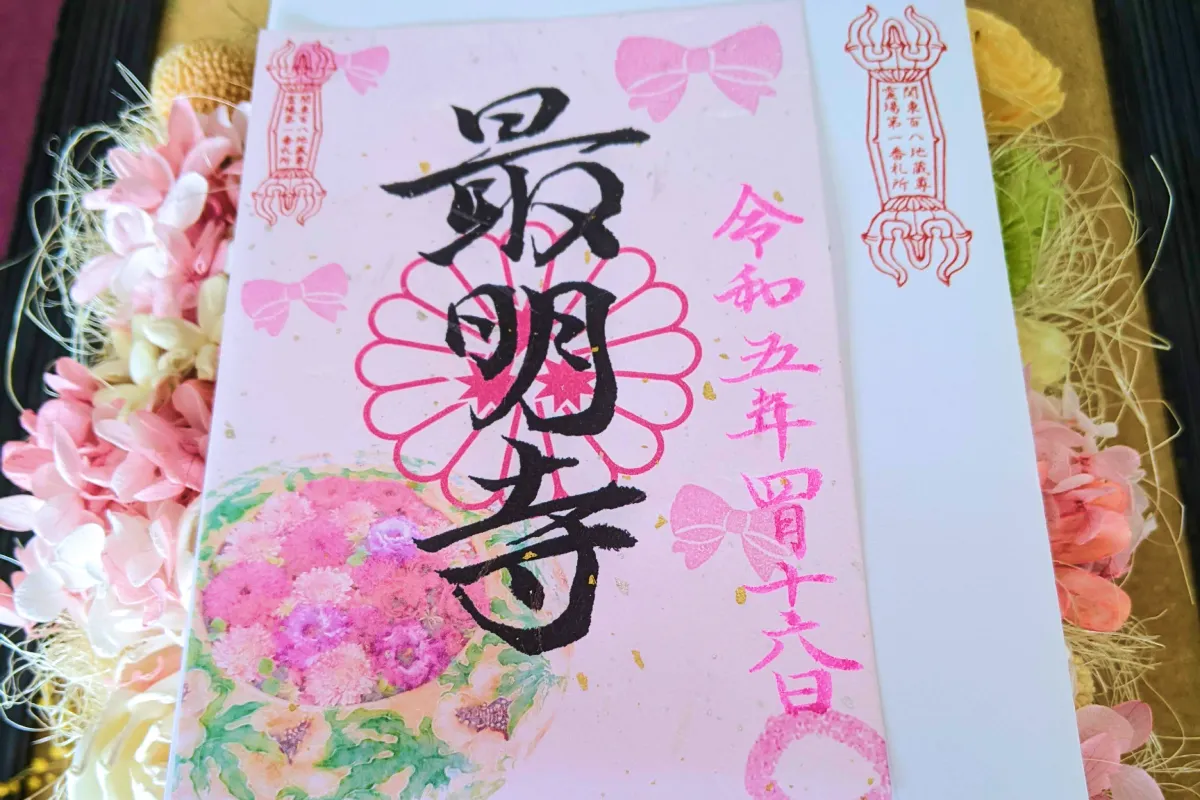 関東百八地蔵尊
霊場第一番札所
令和五年四月十六日
最明寺
関東百八地蔵尊
霊場第一番札所